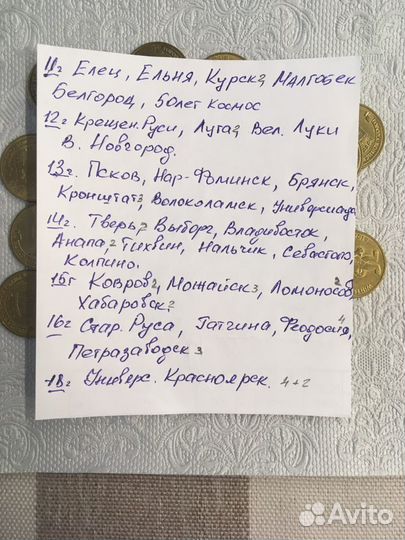 11г Елец, Ельня, Курск2, Малгобек
Белгород, 50лет космос
12г Крещен. Руси, Луга2, Вел. Луки
В. Новгород.
13г. Псков, Нар-Фоминск, Брянск,
Кронштат2, Волоколамск, Универсиада
14г. Тверь,2 Выборг, Владивосток,
Анапа,2 Тихвин, Нальчик, Севастопо,
Колпино.
15г Ковров2, Можайск3, Ломоносов,2
Хабаровск2
16г Стар. Руса, Гатчина, Феодосия,4
Петразаводск 3
18г Универс. Красноярск. 4+2
Avito